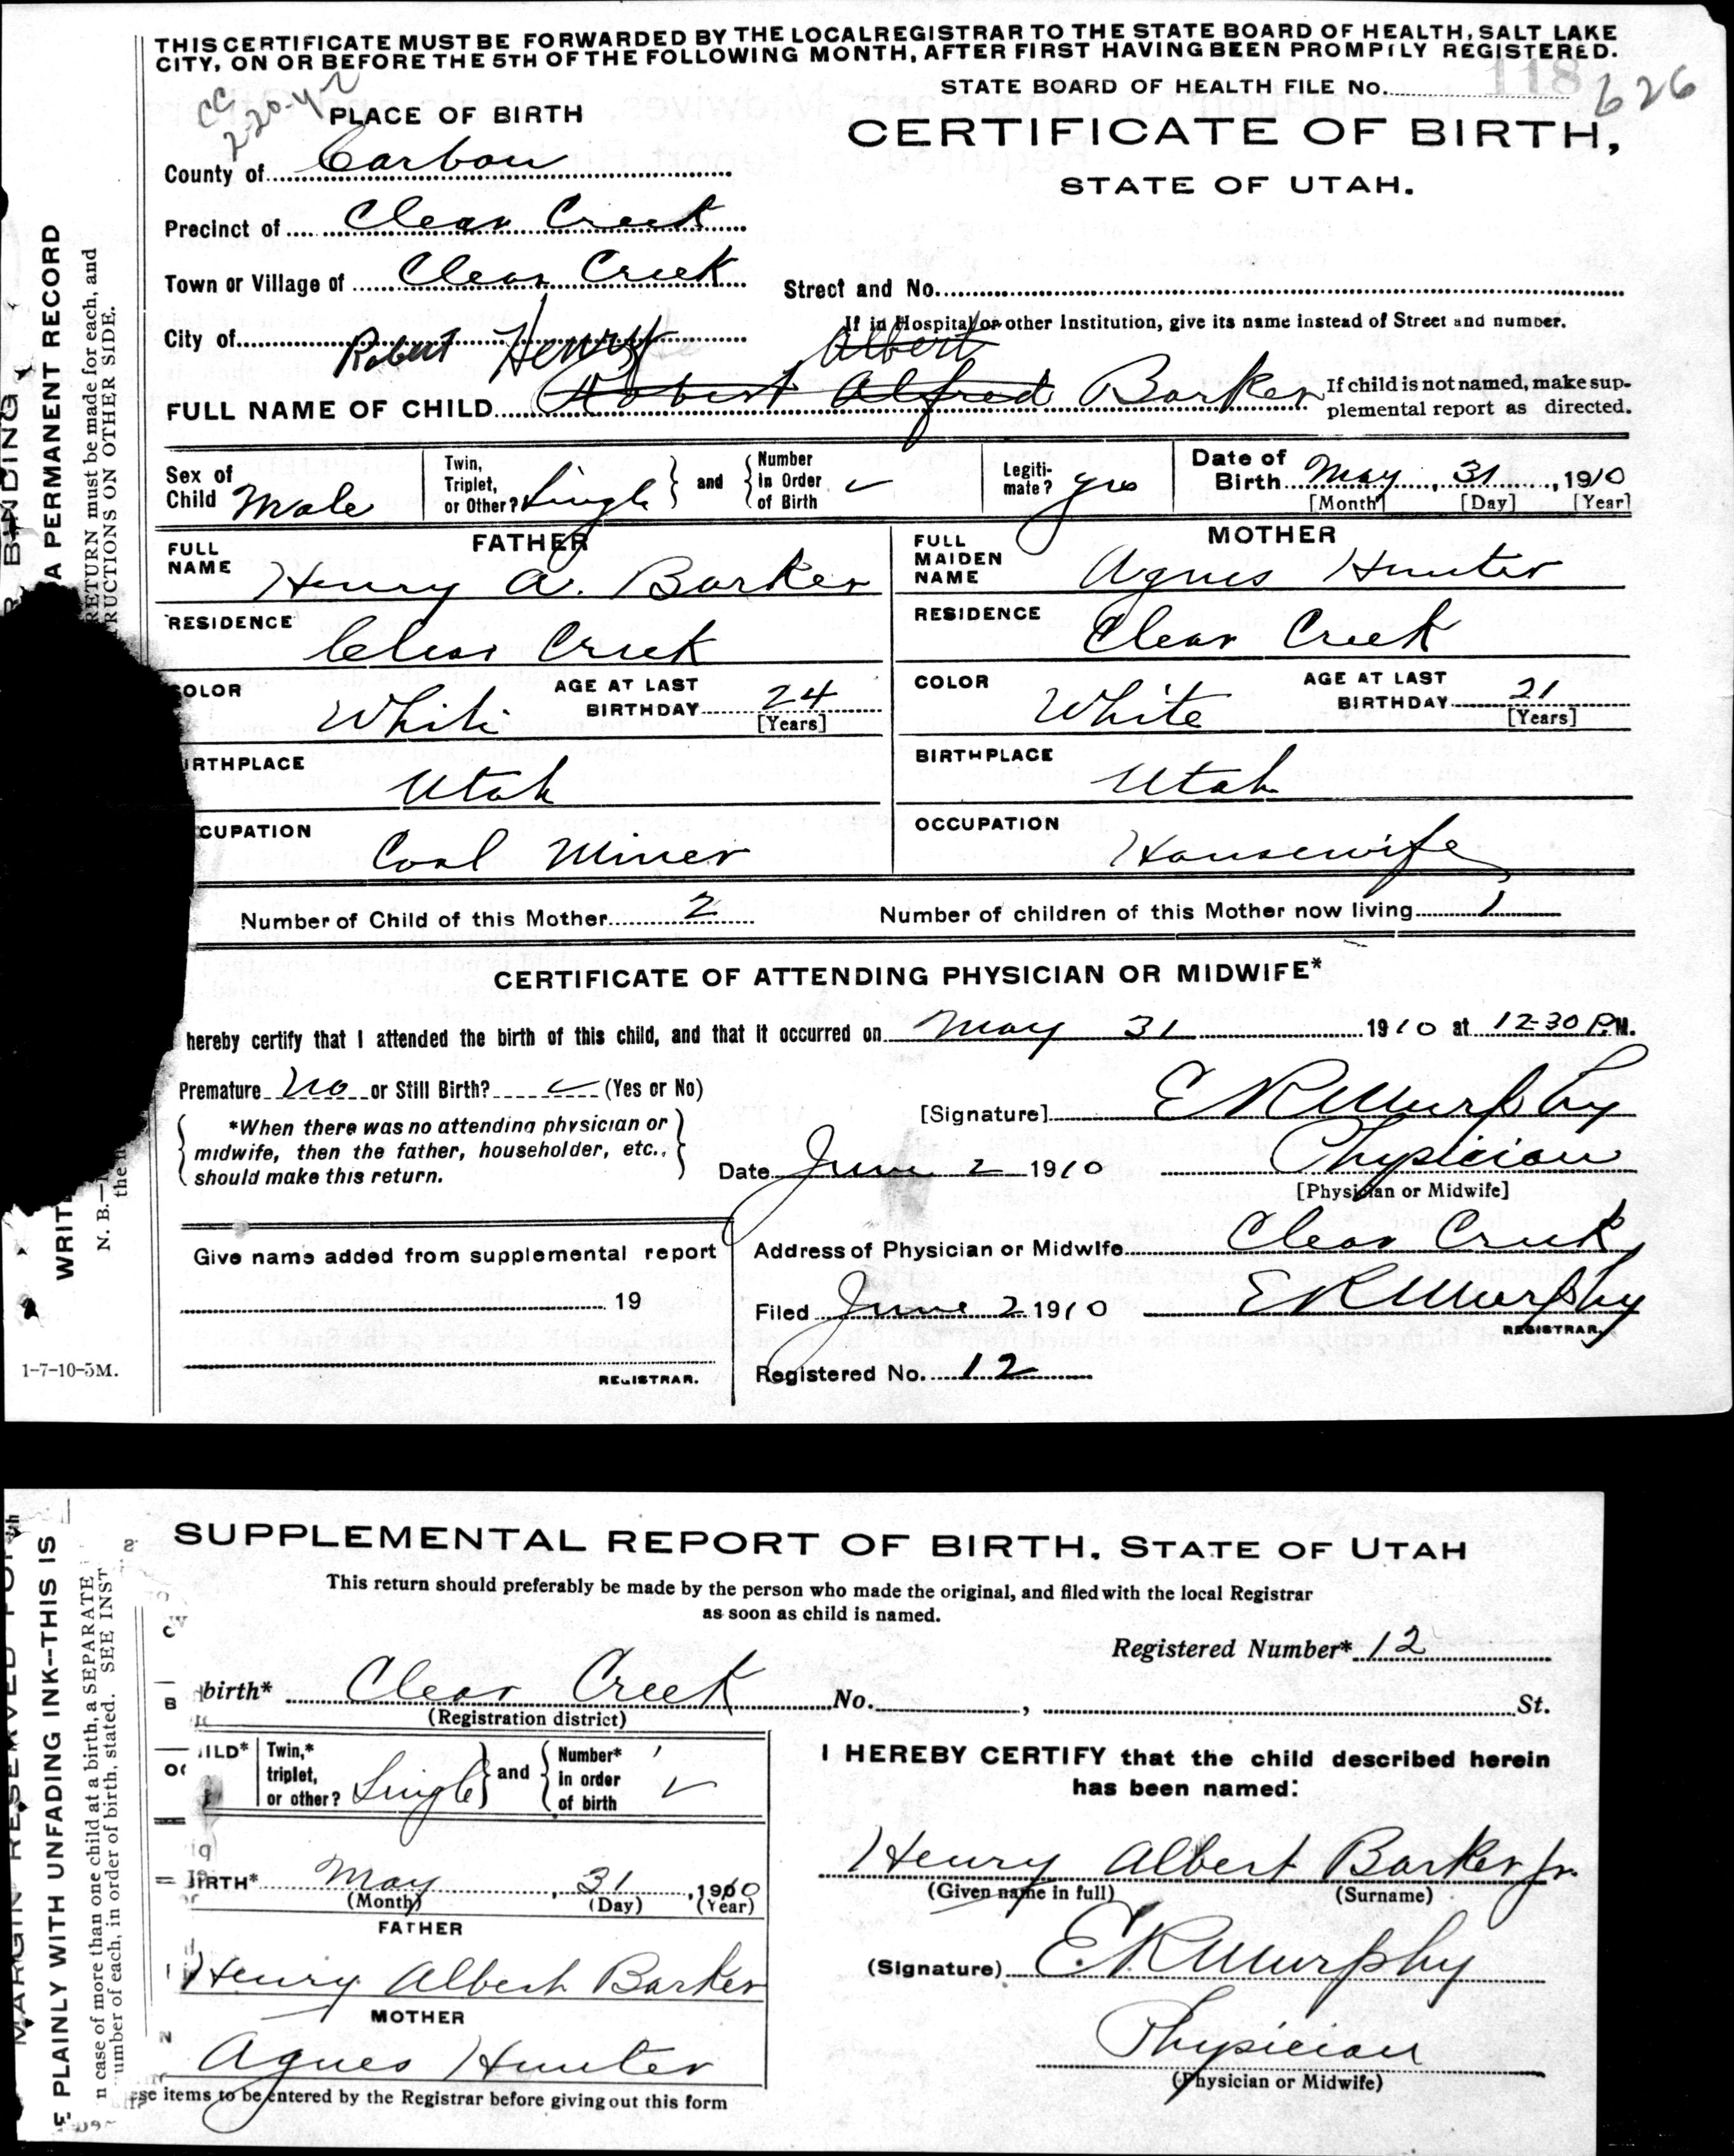 THIS CERTIFICATE MUST BE FORWARDED BY THE LOCAL REGISTRAR TO THE STATE BOARD OF HEALTH, SALT LAKE
CITY, ON OR BEFORE THE 5TH OF THE FOLLOWING MONTH, AFTER FIRST HAVING BEEN PROMPTLY REGISTERED.
STATE BOARD OF HEALTH FILE No. 118 626
CC 2-20-42
PLACE OF BIRTH
CERTIFICATE OF BIRTH,
STATE OF UTAH.
County of Carbon
Precinct of Clear Creek
Town or Village of Clear Creek
Street and No.
If in Hospital or other Institution, give its name instead of Street and number.
City of
Robert Henry Albert
FULL NAME OF CHILD Robert Alfred Barker
If child is not named, make sup-
plemental report as directed.
Sex of Child Male
Twin, Triplet, or Other? Single and Number in Order of Birth ✓
Legiti-
mate? yes
Date of Birth May, 31, 1910
[Month] [Day] [Year]
FATHER
FULL NAME Henry A. Barker
RESIDENCE Clear Creek
OLOR White AGE AT LAST BIRTHDAY 24
[Years]
IRTHPLACE Utah
CUPATION Coal Miner
MOTHER
FULL MAIDEN NAME Agnes Hunter
RESIDENCE Clear Creek
COLOR White AGE AT LAST BIRTHDAY 21
[Years]
BIRTHPLACE Utah
OCCUPATION Housewife
Number of Child of this Mother 2 Number of children of this Mother now living 1
CERTIFICATE OF ATTENDING PHYSICIAN OR MIDWIFE*
hereby certify that I attended the birth of this child, and that it occurred on May 31 1910 at 12-30 P.M.
Premature No or Still Birth? ✓ (Yes or No)
*When there was no attending physician or
midwife, then the father, householder, etc.,
should make this return.
[Signature] E R Murphy
Date June 2 1910 Physician
[Physician or Midwife]
Give name added from supplemental report
19
REGISTRAR.
Address of Physician or Midwife Clear Creek
Filed June 2 1910 E R Murphy
REGISTRAR.
Registered No. 12
1-7-10-5M.
A PERMANENT RECORD
RETURN must be made for each, and
RUCTIONS ON OTHER SIDE.
WRITE
N. B.—
the n
SUPPLEMENTAL REPORT OF BIRTH, STATE OF UTAH
This return should preferably be made by the person who made the original, and filed with the local Registrar
as soon as child is named.
Registered Number* 12
birth* Clear Creek No. , St.
(Registration district)
ILD* Twin,* triplet, or other? Single and Number* in order of birth ✓
I HEREBY CERTIFY that the child described herein
has been named:
IRTH* May, 31, 1910
(Month) (Day) (Year)
Henry Albert Barker Jr.
(Given name in full) (Surname)
FATHER
Henry Albert Barker
(Signature) E R Murphy
MOTHER
Agnes Hunter
Physician
(Physician or Midwife)
se items to be entered by the Registrar before giving out this form
MARGIN RESERVED FOR
E PLAINLY WITH UNFADING INK--THIS IS
n case of more than one child at a birth, a SEPARATE
umber of each, in order of birth, stated. SEE INST